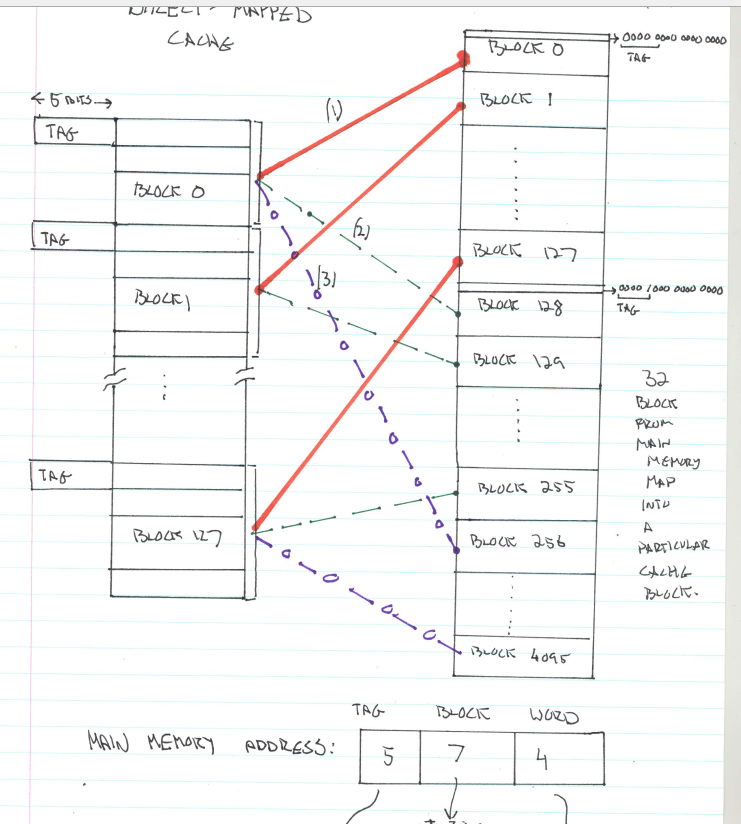 DIRECT-MAPPED
CACHE
← 5 BITS →
TAG
BLOCK 0
TAG
BLOCK 1
TAG
BLOCK 127
(1)
(2)
(3)
BLOCK 0
0000 0000 0000 0000
TAG
BLOCK 1
BLOCK 127
0000 1000 0000 0000
TAG
BLOCK 128
BLOCK 129
BLOCK 255
BLOCK 256
BLOCK 4095
32
BLOCK
FROM
MAIN
MEMORY
MAP
INTO
A
PARTICULAR
CACHE
BLOCK.
TAG BLOCK WORD
MAIN MEMORY ADDRESS: 5 7 4